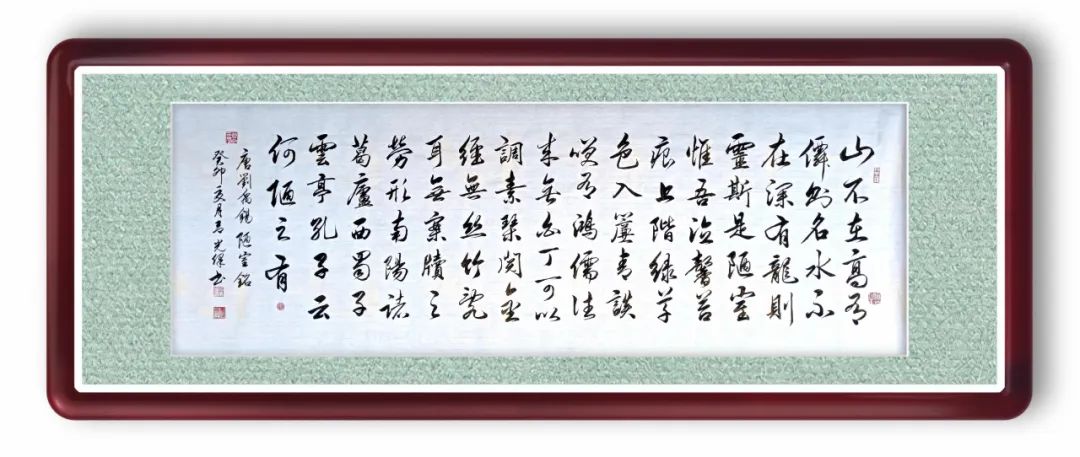 山不在高有
僊則名水不
在深有龍則
靈斯是陋室
惟吾德馨苔
痕上階綠草
色入簾青談
笑有鴻儒往
来無白丁可以
調素琴閱金
經無絲竹亂
耳無案牘之
勞形南陽諸
葛廬西蜀子
雲亭孔子云
何陋之有
唐劉禹錫陋室銘
癸卯亥月光书